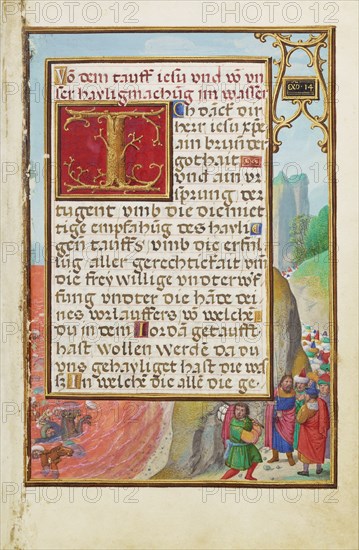 Võ dem tauff iesu und võ un
ser hayligmachũg im wasser
Exõ · 14
ICh danck dir
herr iesu xpe
ain brunder
gothait
und ain ur
sprung der
tugent umb die diemiet
tige empfahũg des hayli
gen tauffs umb die erful
lung aller gerechtickait uñ
die frey willige undterwer
fung undter die hãde dei
nes vorlauffers võ welchẽ
du in dem Iordã getaufft
hast wollen werdẽ da du
uns gehayliget hast die was
sẽ In welchẽ die allẽ die ge.
PHOTO12